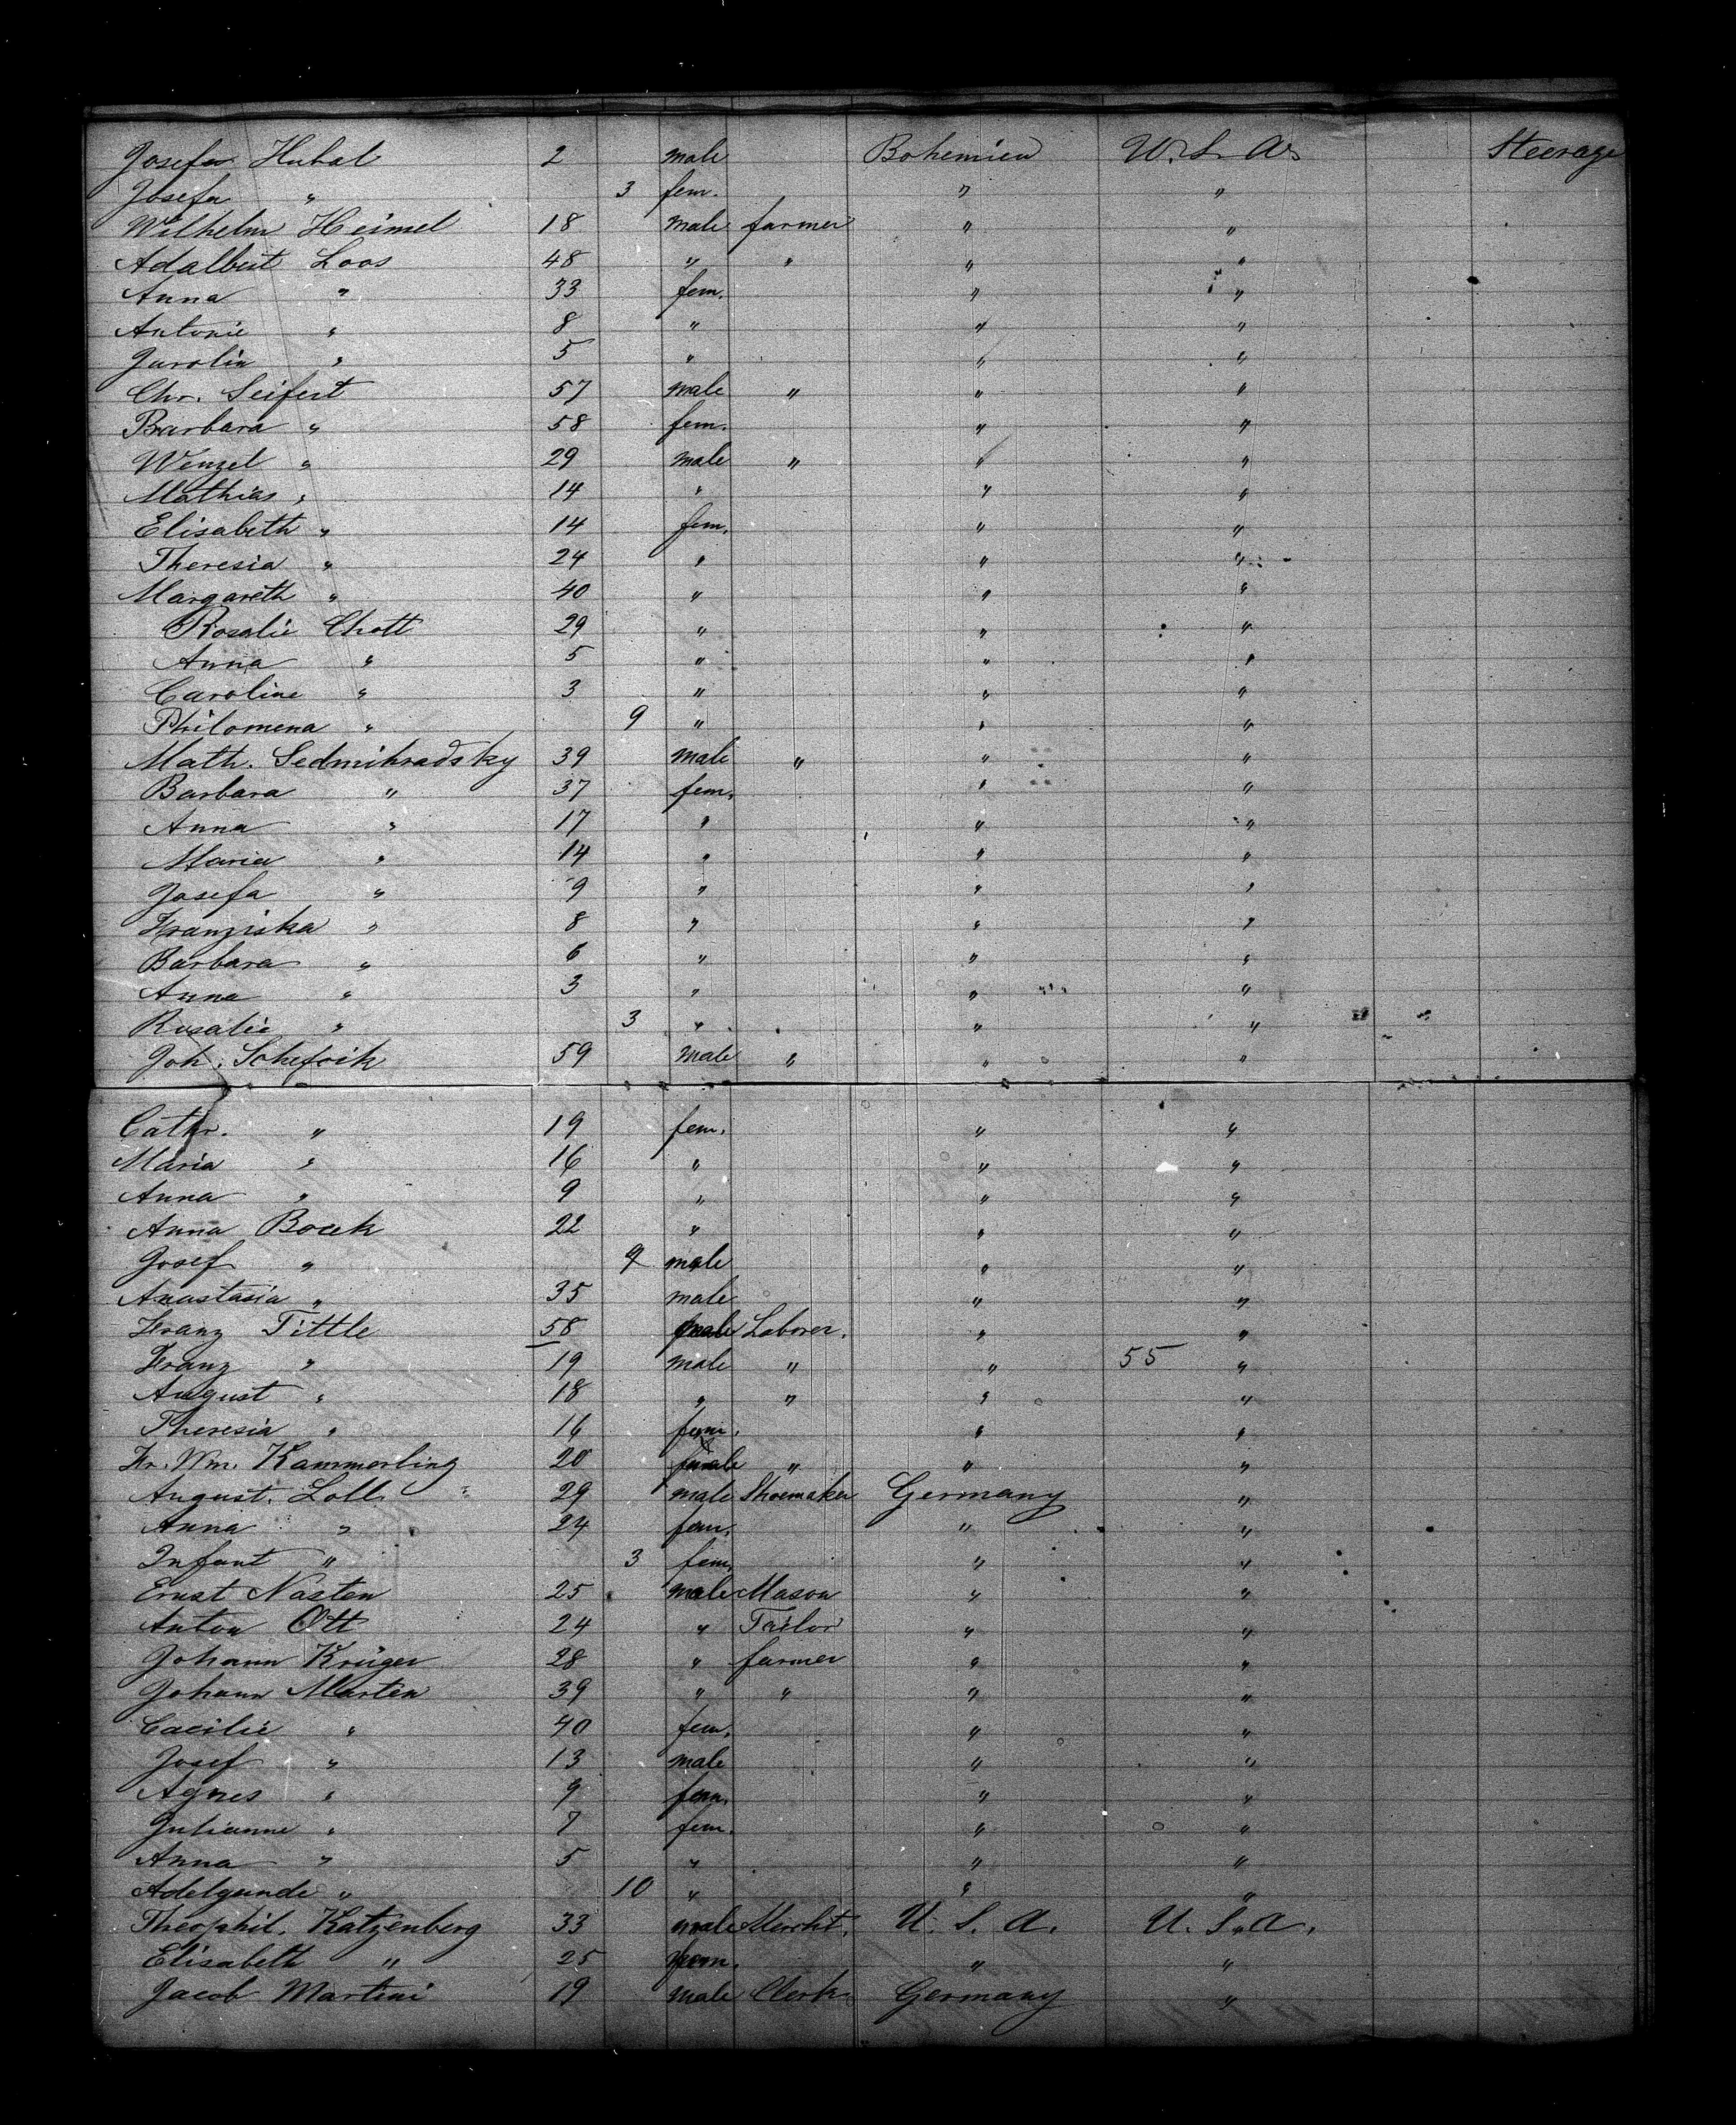 Josefa Hubal 2 male Bohemien U. S. A. Steerage
Josefa " 3 fem. " "
Wilhelm Heimel 18 male farmer " "
Adalbert Loos 48 " " " "
Anna " 33 fem. " "
Antonie " 8 " " "
Jarolia " 5 " " "
Chr. Seifert 57 male " " "
Barbara " 58 fem. " "
Wenzel " 29 male " " "
Mathias " 14 " " "
Elisabeth " 14 fem. " "
Theresia " 24 " " "
Margareth " 40 " " "
Rosalie Chott 29 " " "
Anna " 5 " " "
Caroline " 3 " " "
Philomena " 9 " " "
Math. Sedmihradsky 39 male " " "
Barbara " 37 fem. " "
Anna " 17 " " "
Maria " 14 " " "
Josefa " 9 " " "
Franziska " 8 " " "
Barbara " 6 " " "
Anna " 3 " " "
Rosalie " 3 " " "
Joh. Schefcik 59 male " " "
Cathr. " 19 fem. " "
Maria " 16 " " "
Anna " 9 " " "
Anna Bocek 22 " " "
Josef " 9 male " "
Anastasia " 35 male " "
Franz Tittle 58 male Laborer. " "
Franz " 19 male " " 55 "
August " 18 " " " "
Theresia " 16 fem. " "
Fr. Wm. Kammerling 20 male " " "
August. Loll 29 male Shoemaker Germany "
Anna " 24 fem. " "
Infant " 3 fem. " "
Ernst Nasten 25 male Mason " "
Anton Ott 24 " Tailor " "
Johann Krüger 28 " farmer " "
Johann Marten 39 " " " "
Cacilie " 40 fem. " "
Josef " 13 male " "
Agnes " 9 fem. " "
Julianne " 7 fem. " "
Anna " 5 " " "
Adelgunde " 10 " " "
Theophil. Katzenberg 33 male Mercht. U. S. A. U. S. A.
Elisabeth " 25 fem. " "
Jacob Martini 19 male Clerk Germany "